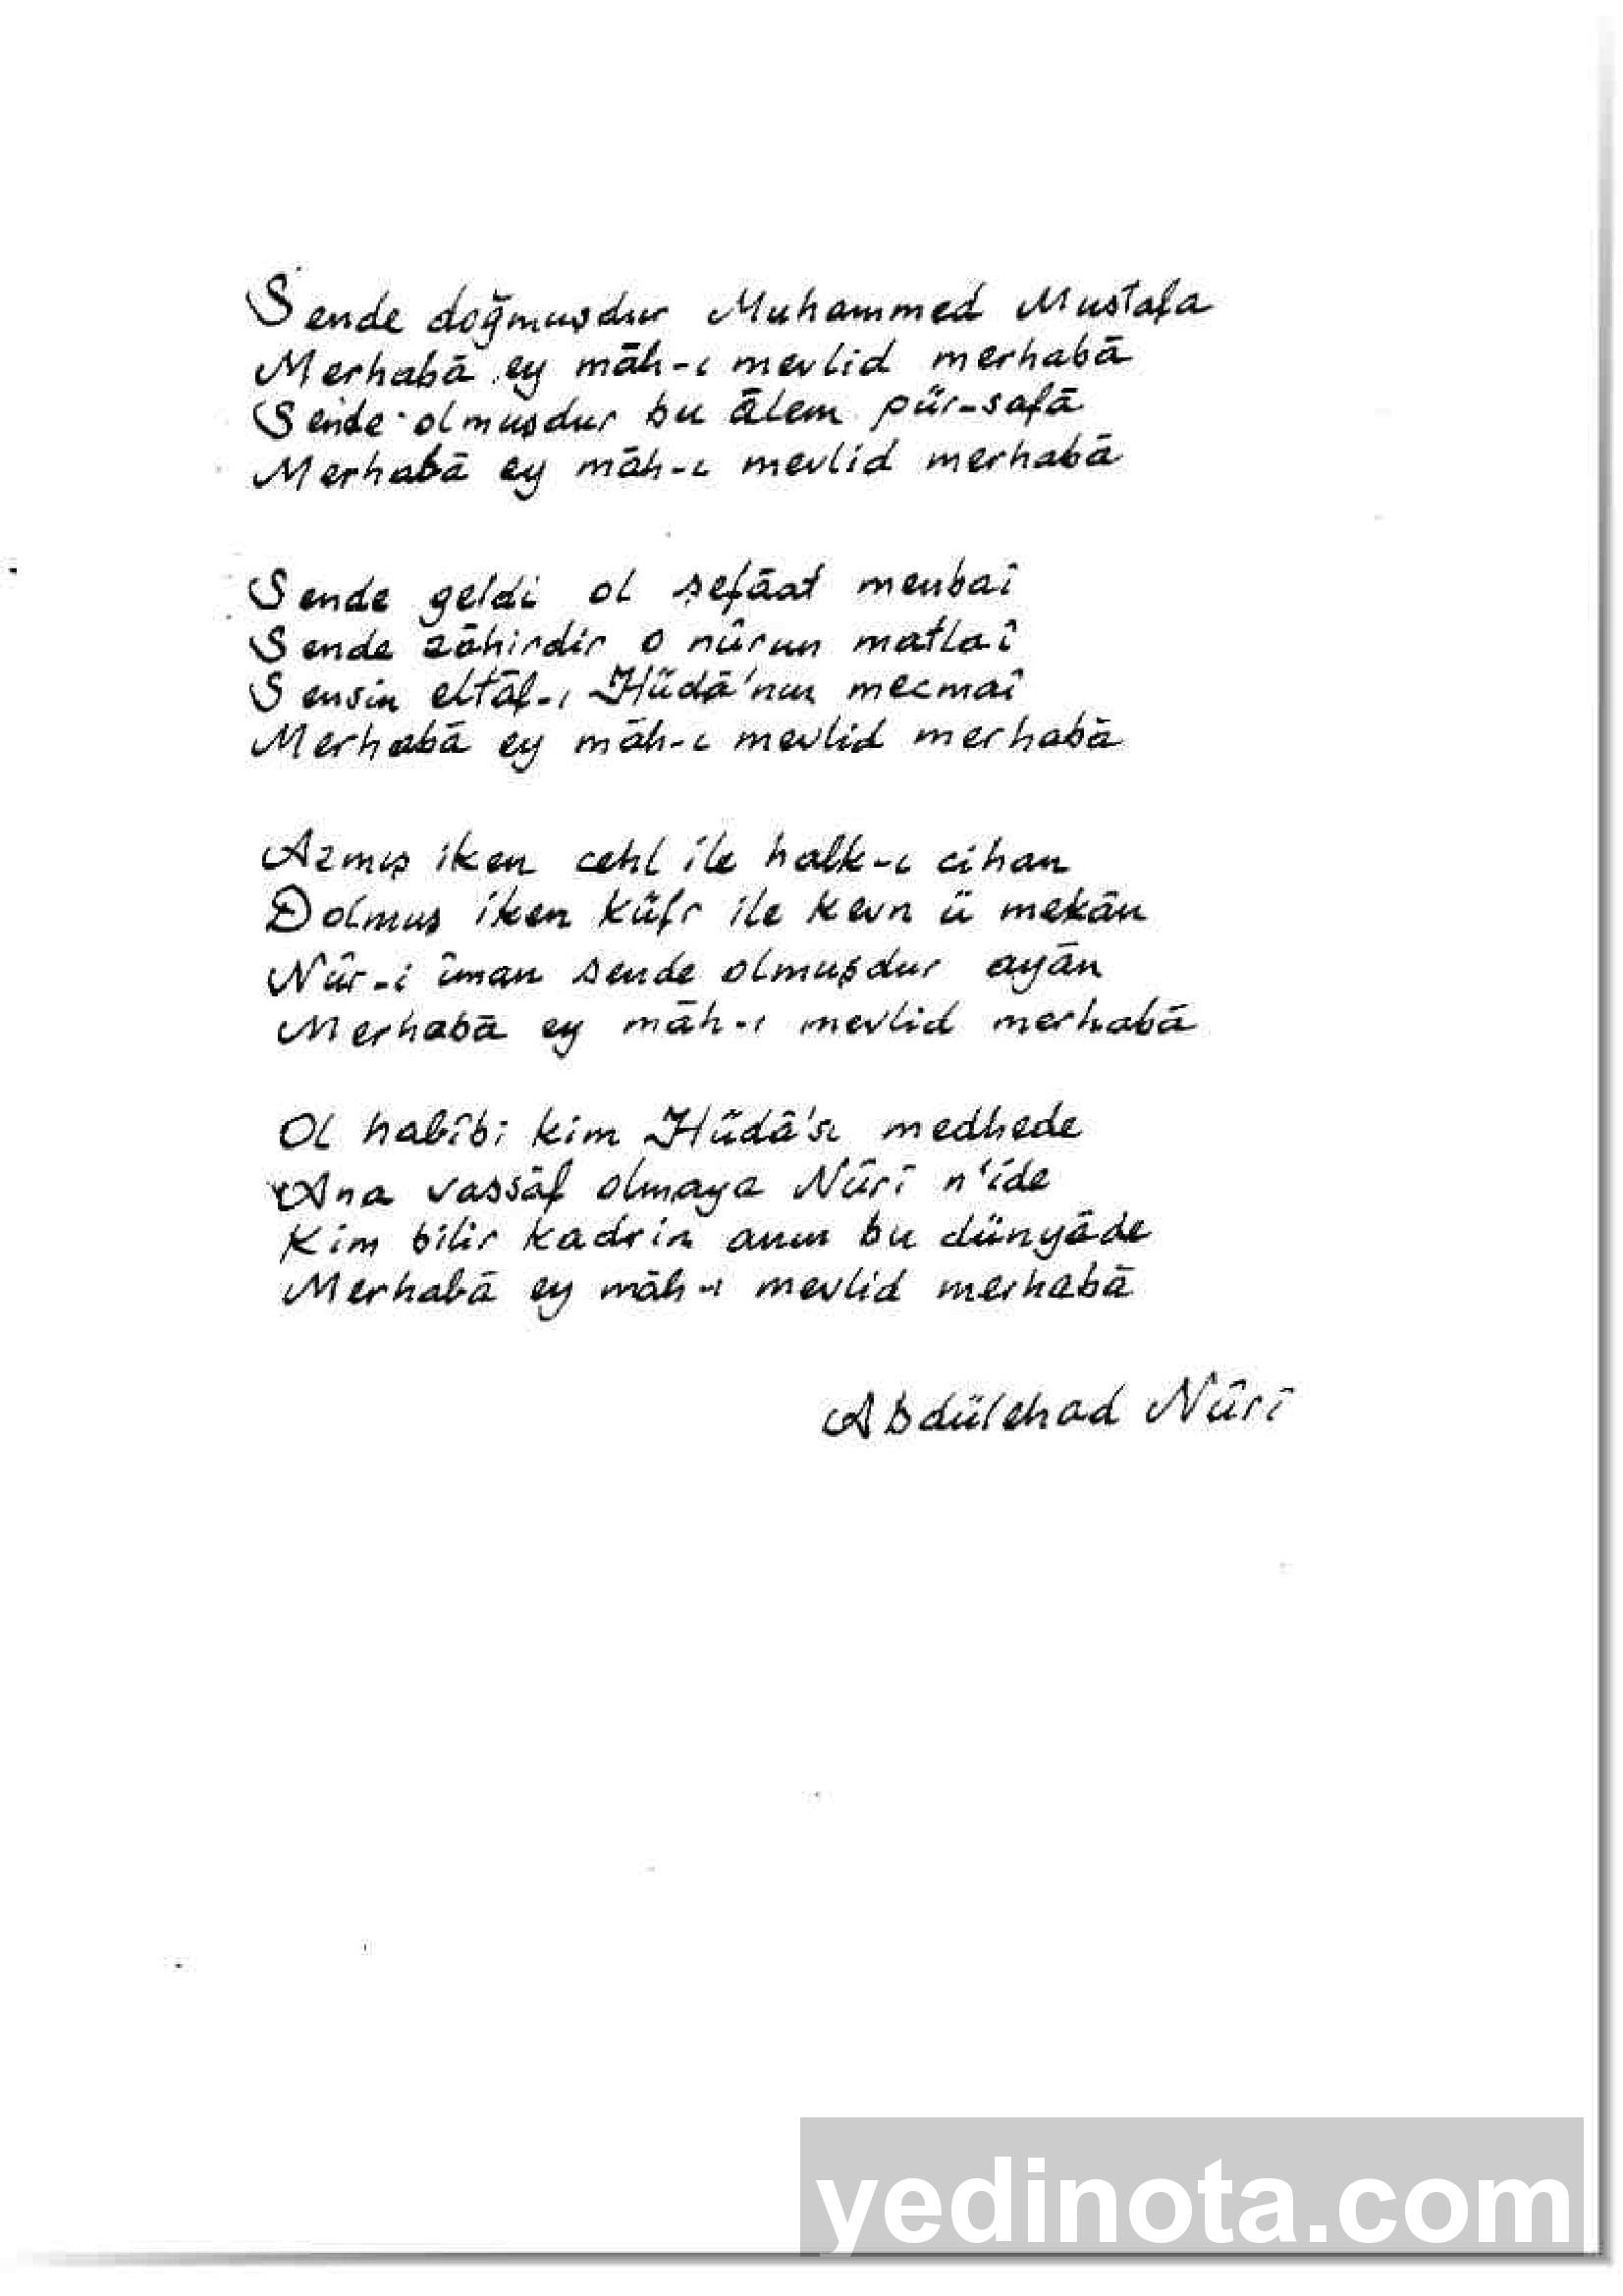 Sende doğmuşdur Muhammed Mustafa
Merhabā ey māh-ı mevlid merhabā
Sende olmuşdur bu ālem pür-safā
Merhabā ey māh-ı mevlid merhabā
Sende geldi ol şefāat menbaî
Sende zāhirdir o nûrun matlaî
Sensin eltāf-ı Hüdā'nın mecmaî
Merhabā ey māh-ı mevlid merhabā
Azmış iken cehl ile halk-ı cihan
Dolmuş iken küfr ile kevn ü mekân
Nûr-i îman sende olmuşdur ayān
Merhabā ey māh-ı mevlid merhabā
Ol habîbi kim Hüdâ'sı medhede
Ana vassāf olmaya Nûrî n'ide
Kim bilir kadrin anın bu dünyâde
Merhabā ey māh-ı mevlid merhabā
Abdülehad Nûrî
yedinota.com